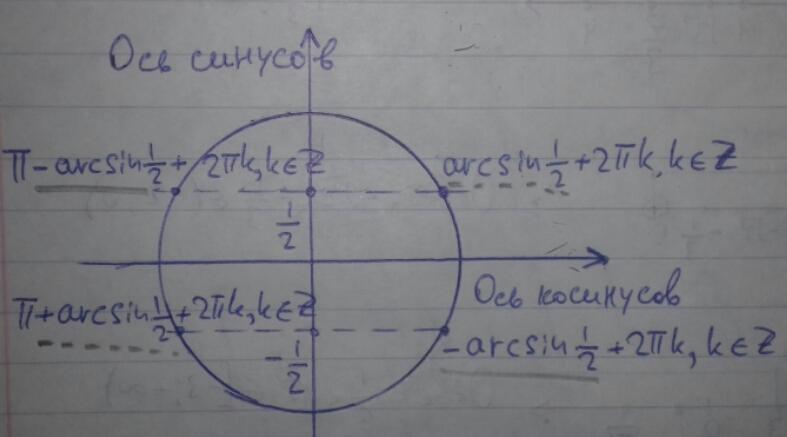 Ось синусов
π-arcsin 1/2 + 2πk, k∈Z
arcsin 1/2 + 2πk, k∈Z
1/2
Ось косинусов
π+arcsin 1/2 + 2πk, k∈Z
-1/2
-arcsin 1/2 + 2πk, k∈Z